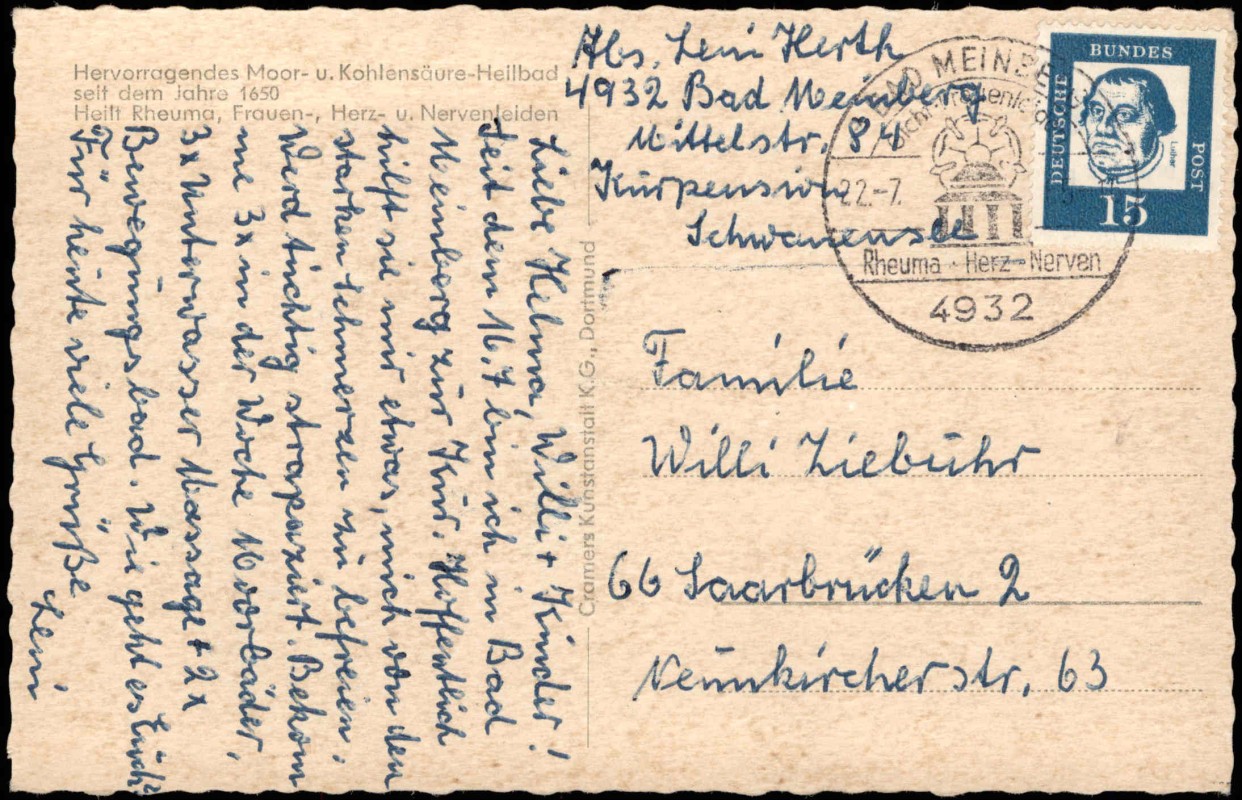 Hervorragendes Moor- u. Kohlensäure-Heilbad
seit dem Jahre 1650
Heilt Rheuma, Frauen-, Herz- u. Nervenleiden
Liebe Helma, Willi + Kinder!
Seit dem 16.7 bin ich in Bad
Meinberg zur Kur. Hoffentlich
hilft sie mir etwas, mich von den
starken Schmerzen zu befreien.
Werd tüchtig strapaziert. Bekom
me 3x in der Woche Moorbäder,
3x Unterwasser Massage + 2x
Bewegungsbad. Wie geht es Euch?
Für heute viele Grüße
Leni
Cramers Kunstanstalt K.G., Dortmund
Abs. Leni Herth
4932 Bad Meinberg
Mittelstr. 84
Kurpension
Schwanensee
BAD MEINBERG
22.-7.
Rheuma - Herz - Nerven
4932
BUNDES
DEUTSCHE
POST
Luther
15
Familie
Willi Ziebuhr
66 Saarbrücken 2
Neunkircherstr. 63